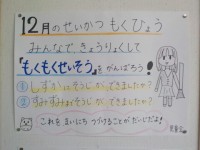 12月のせいかつもくひょう
みんなで、きょうりょくして
「もくもくせいそう」をがんばろう!
① しずかにそうじができましたか?
② すみずみまでそうじができましたか?
これをまいにちつづけることがだいじだよ!